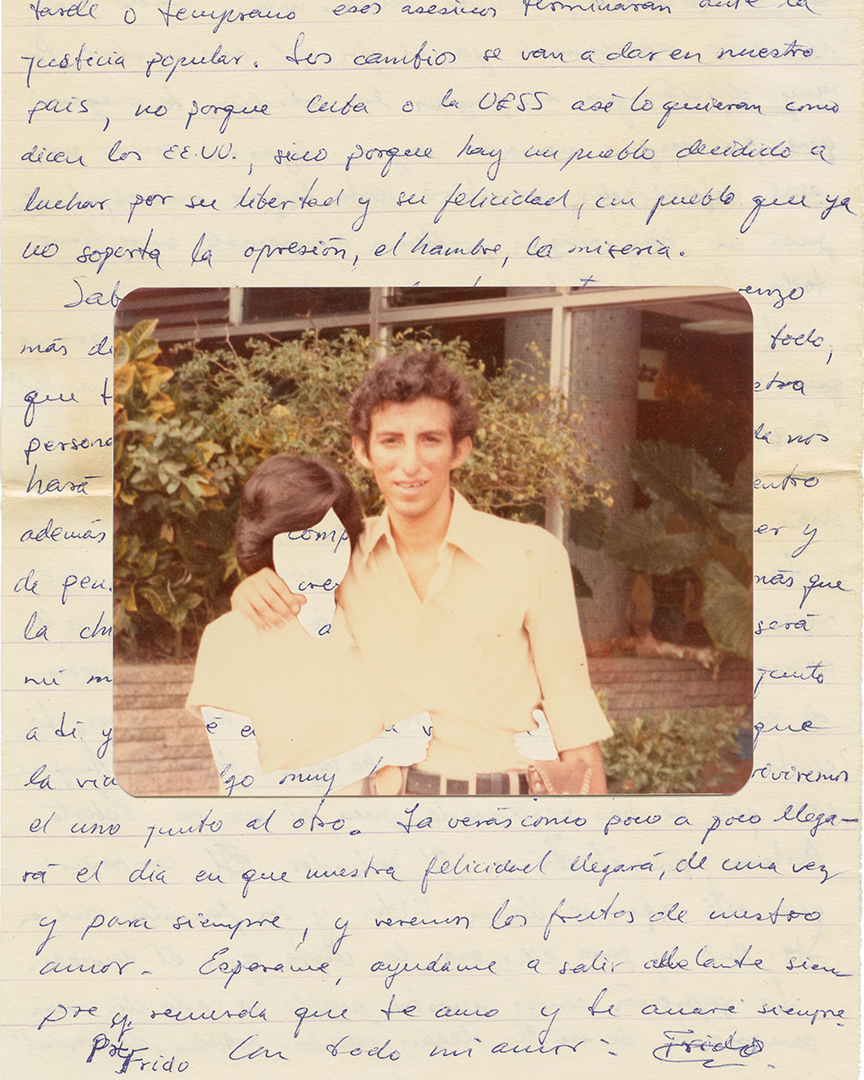 tarde o temprano esos asesinos terminarán ante la
justicia popular. Los cambios se van a dar en nuestro
país, no porque Cuba o la URSS asé lo quieran como
dicen los EE.UU., sino porque hay un pueblo decidido a
luchar por su libertad y su felicidad, un pueblo que ya
no soporta la opresión, el hambre, la miseria.
Sab enzo
más de todo,
que t
persona da nos
hará entro
además comp er y
de pen. cre más que
la ch a será
mi m junto
a ti y é e a v que
la vid go muy viviremos
el uno junto al otro. Ya verás como poco a poco llega-
rá el día en que nuestra felicidad llegará, de una vez
y para siempre, y veremos los frutos de nuestro
amor. Esperame, ayudame a salir adelante siem
pre y recuerda que te amo y te amaré siempre.
Frido Con todo mi amor: Frido.